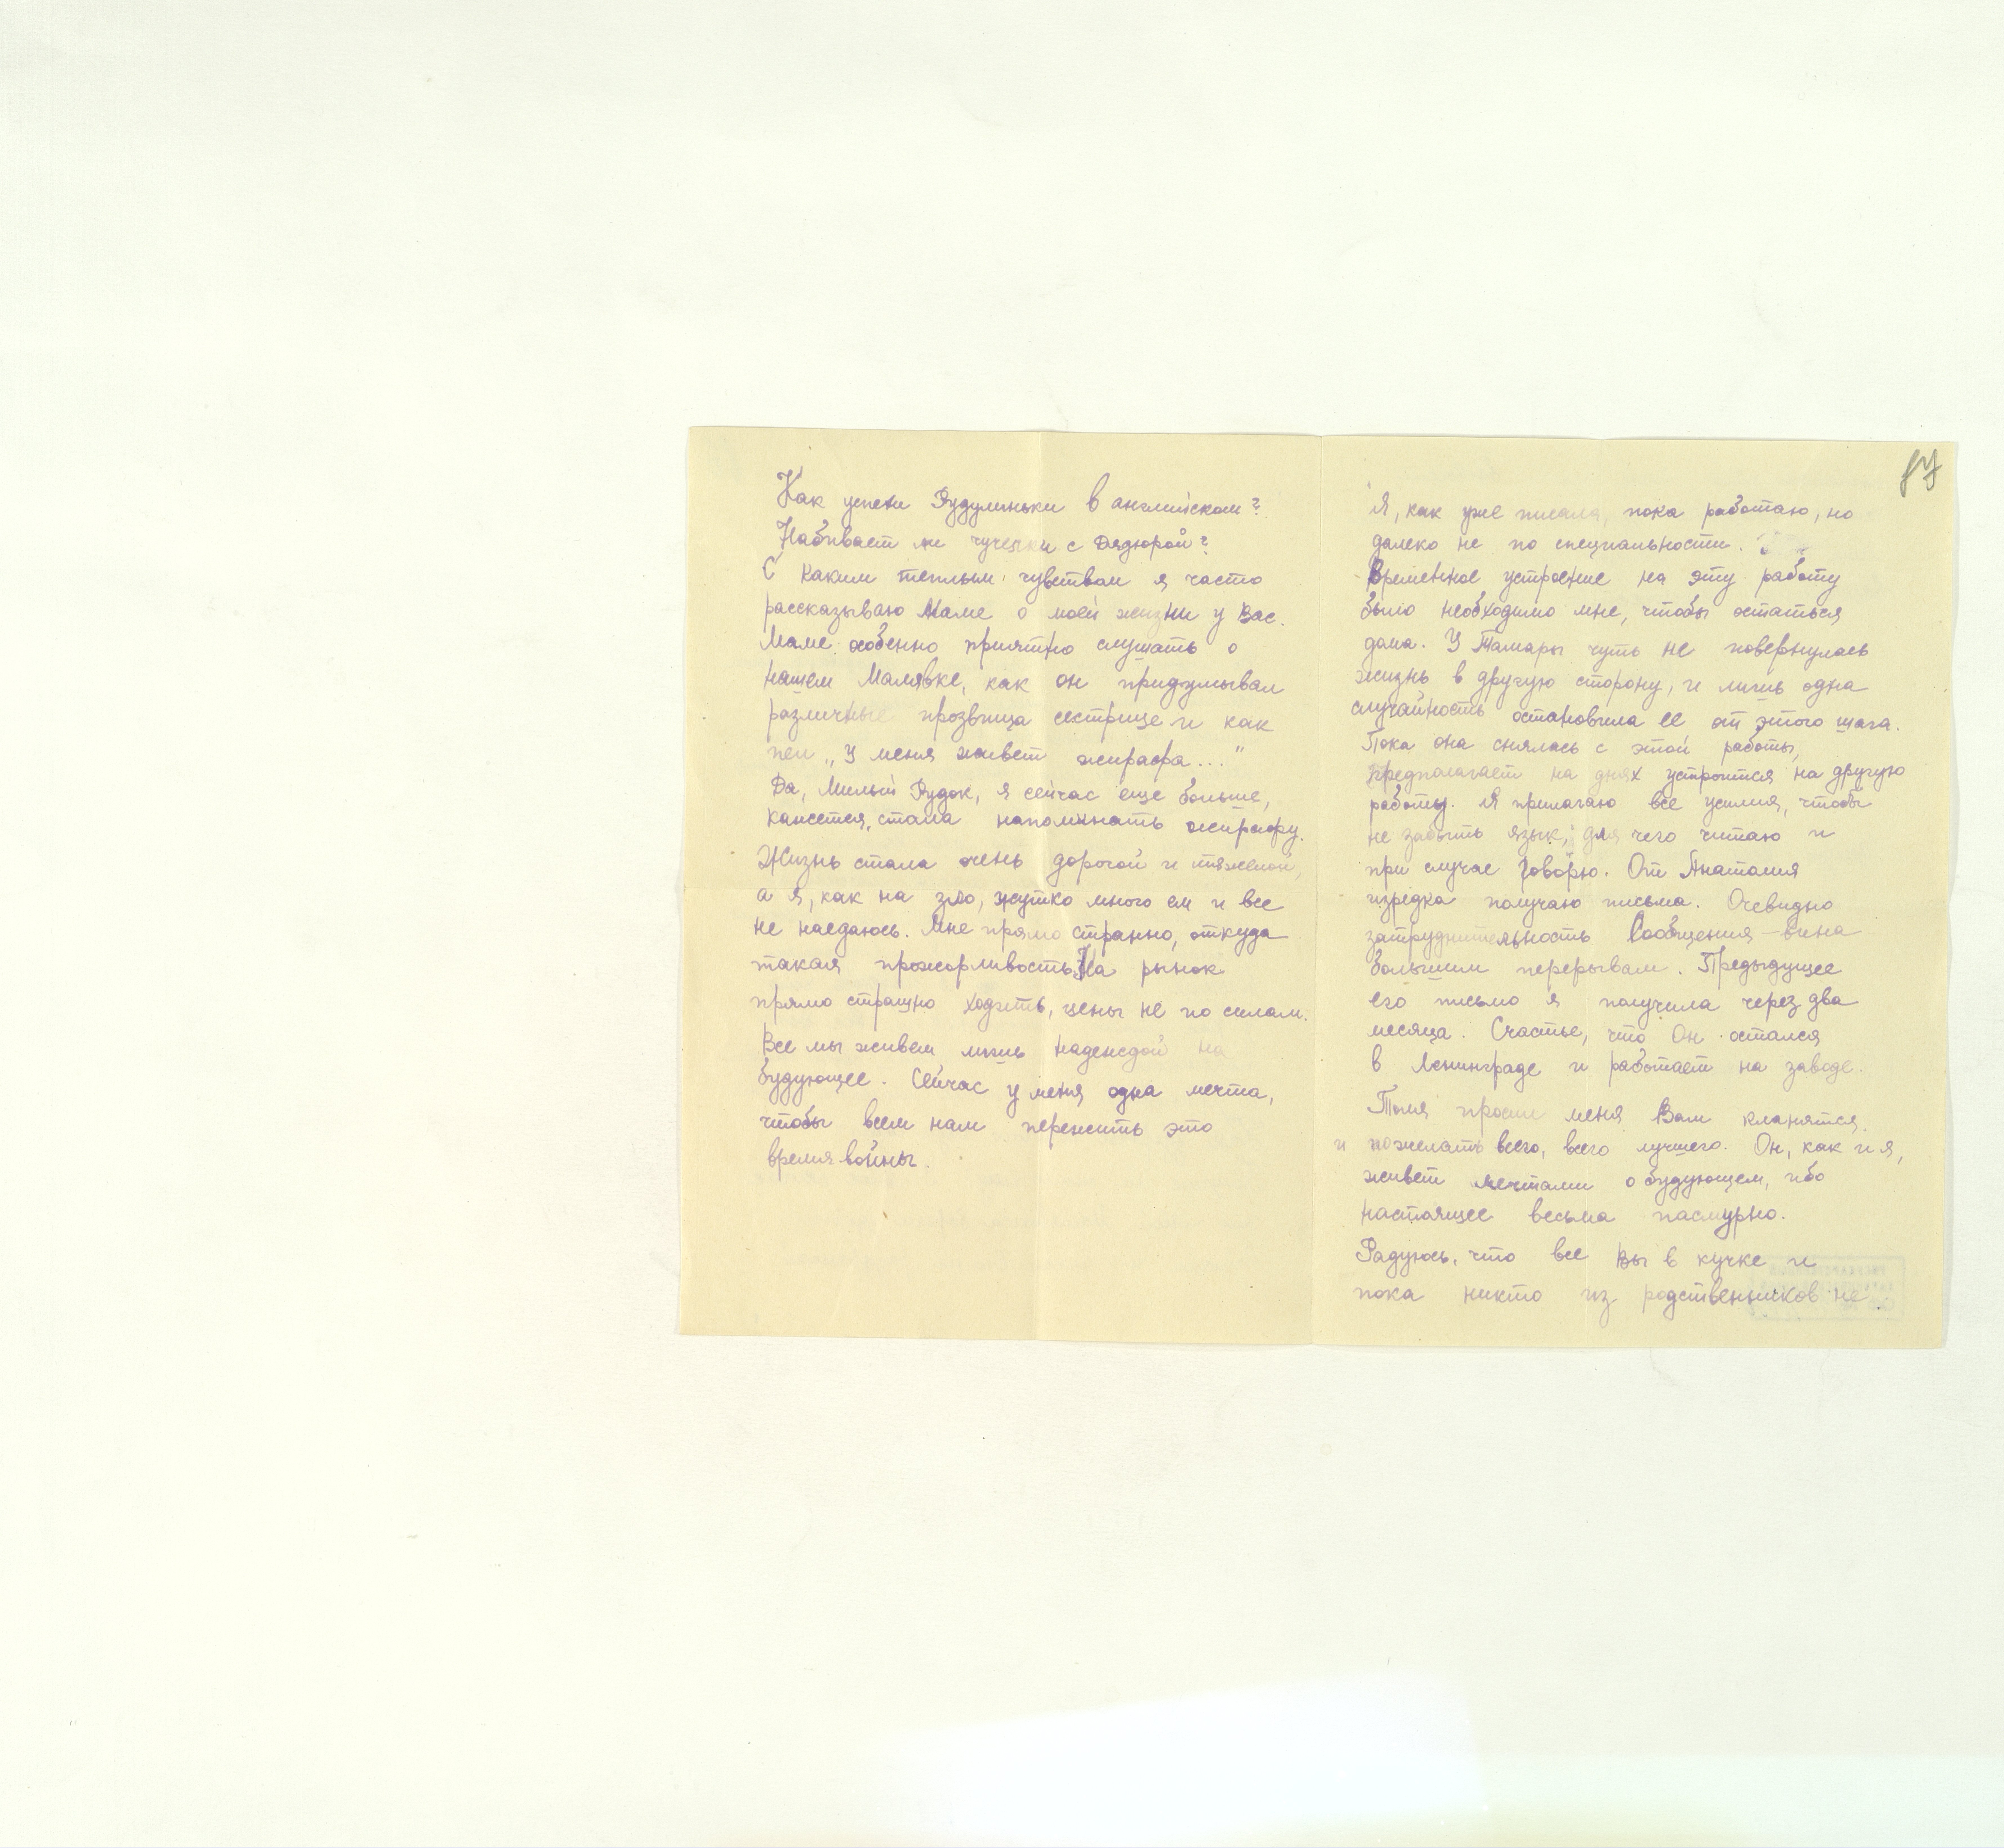 Как успехи Рудулиньки в английском?
Набивает ли чучелки с Дядюрой?
С каким теплым чувствам я часто
рассказываю Маме о моей жизни у Вас.
Маме особенно приятно слушать о
нашем Малявке, как он придумывал
различные прозвища сестрице и как
пел „У меня живет жирафа..."
Да, Милый Рудок, я сейчас еще больше,
кажется, стала напоминать жирафу.
Жизнь стала очень дорогой и тяжелой,
а я, как на зло, жутко много ем и все
не наедаюсь. Мне прямо странно, откуда
такая прожорливость. На рынок
прямо страшно ходить, цены не по силам.
Все мы живем лишь надеждой на
будующее. Сейчас у меня одна мечта,
чтобы всем нам пережить это
время войны.
87
Я, как уже писала, пока работаю, но
далеко не по специальности.
Временное устроение на эту работу
было необходимо мне, чтобы остаться
дома. У Тамары чуть не повернулась
жизнь в другую сторону, и лишь одна
случайность остановила ее от этого шага.
Пока она снялась с этой работы,
предполагает на днях устроится на другую
работу. Я прилагаю все усилия, чтобы
не забыть язык, для чего читаю и
при случае говорю. От Анатолия
изредка получаю письма. Очевидно
затруднительность сообщения – вина
большим перерывам. Предыдущее
его письмо я получила через два
месяца. Счастье, что Он остался
в Ленинграде и работает на заводе.
Толя просил меня Вам кланятся
и пожелать всего, всего лучшего. Он, как и я,
живет мечтами о будующем, ибо
настоящее весьма пасмурно.
Радуюсь, что все Вы в кучке и
пока никто из родственников не